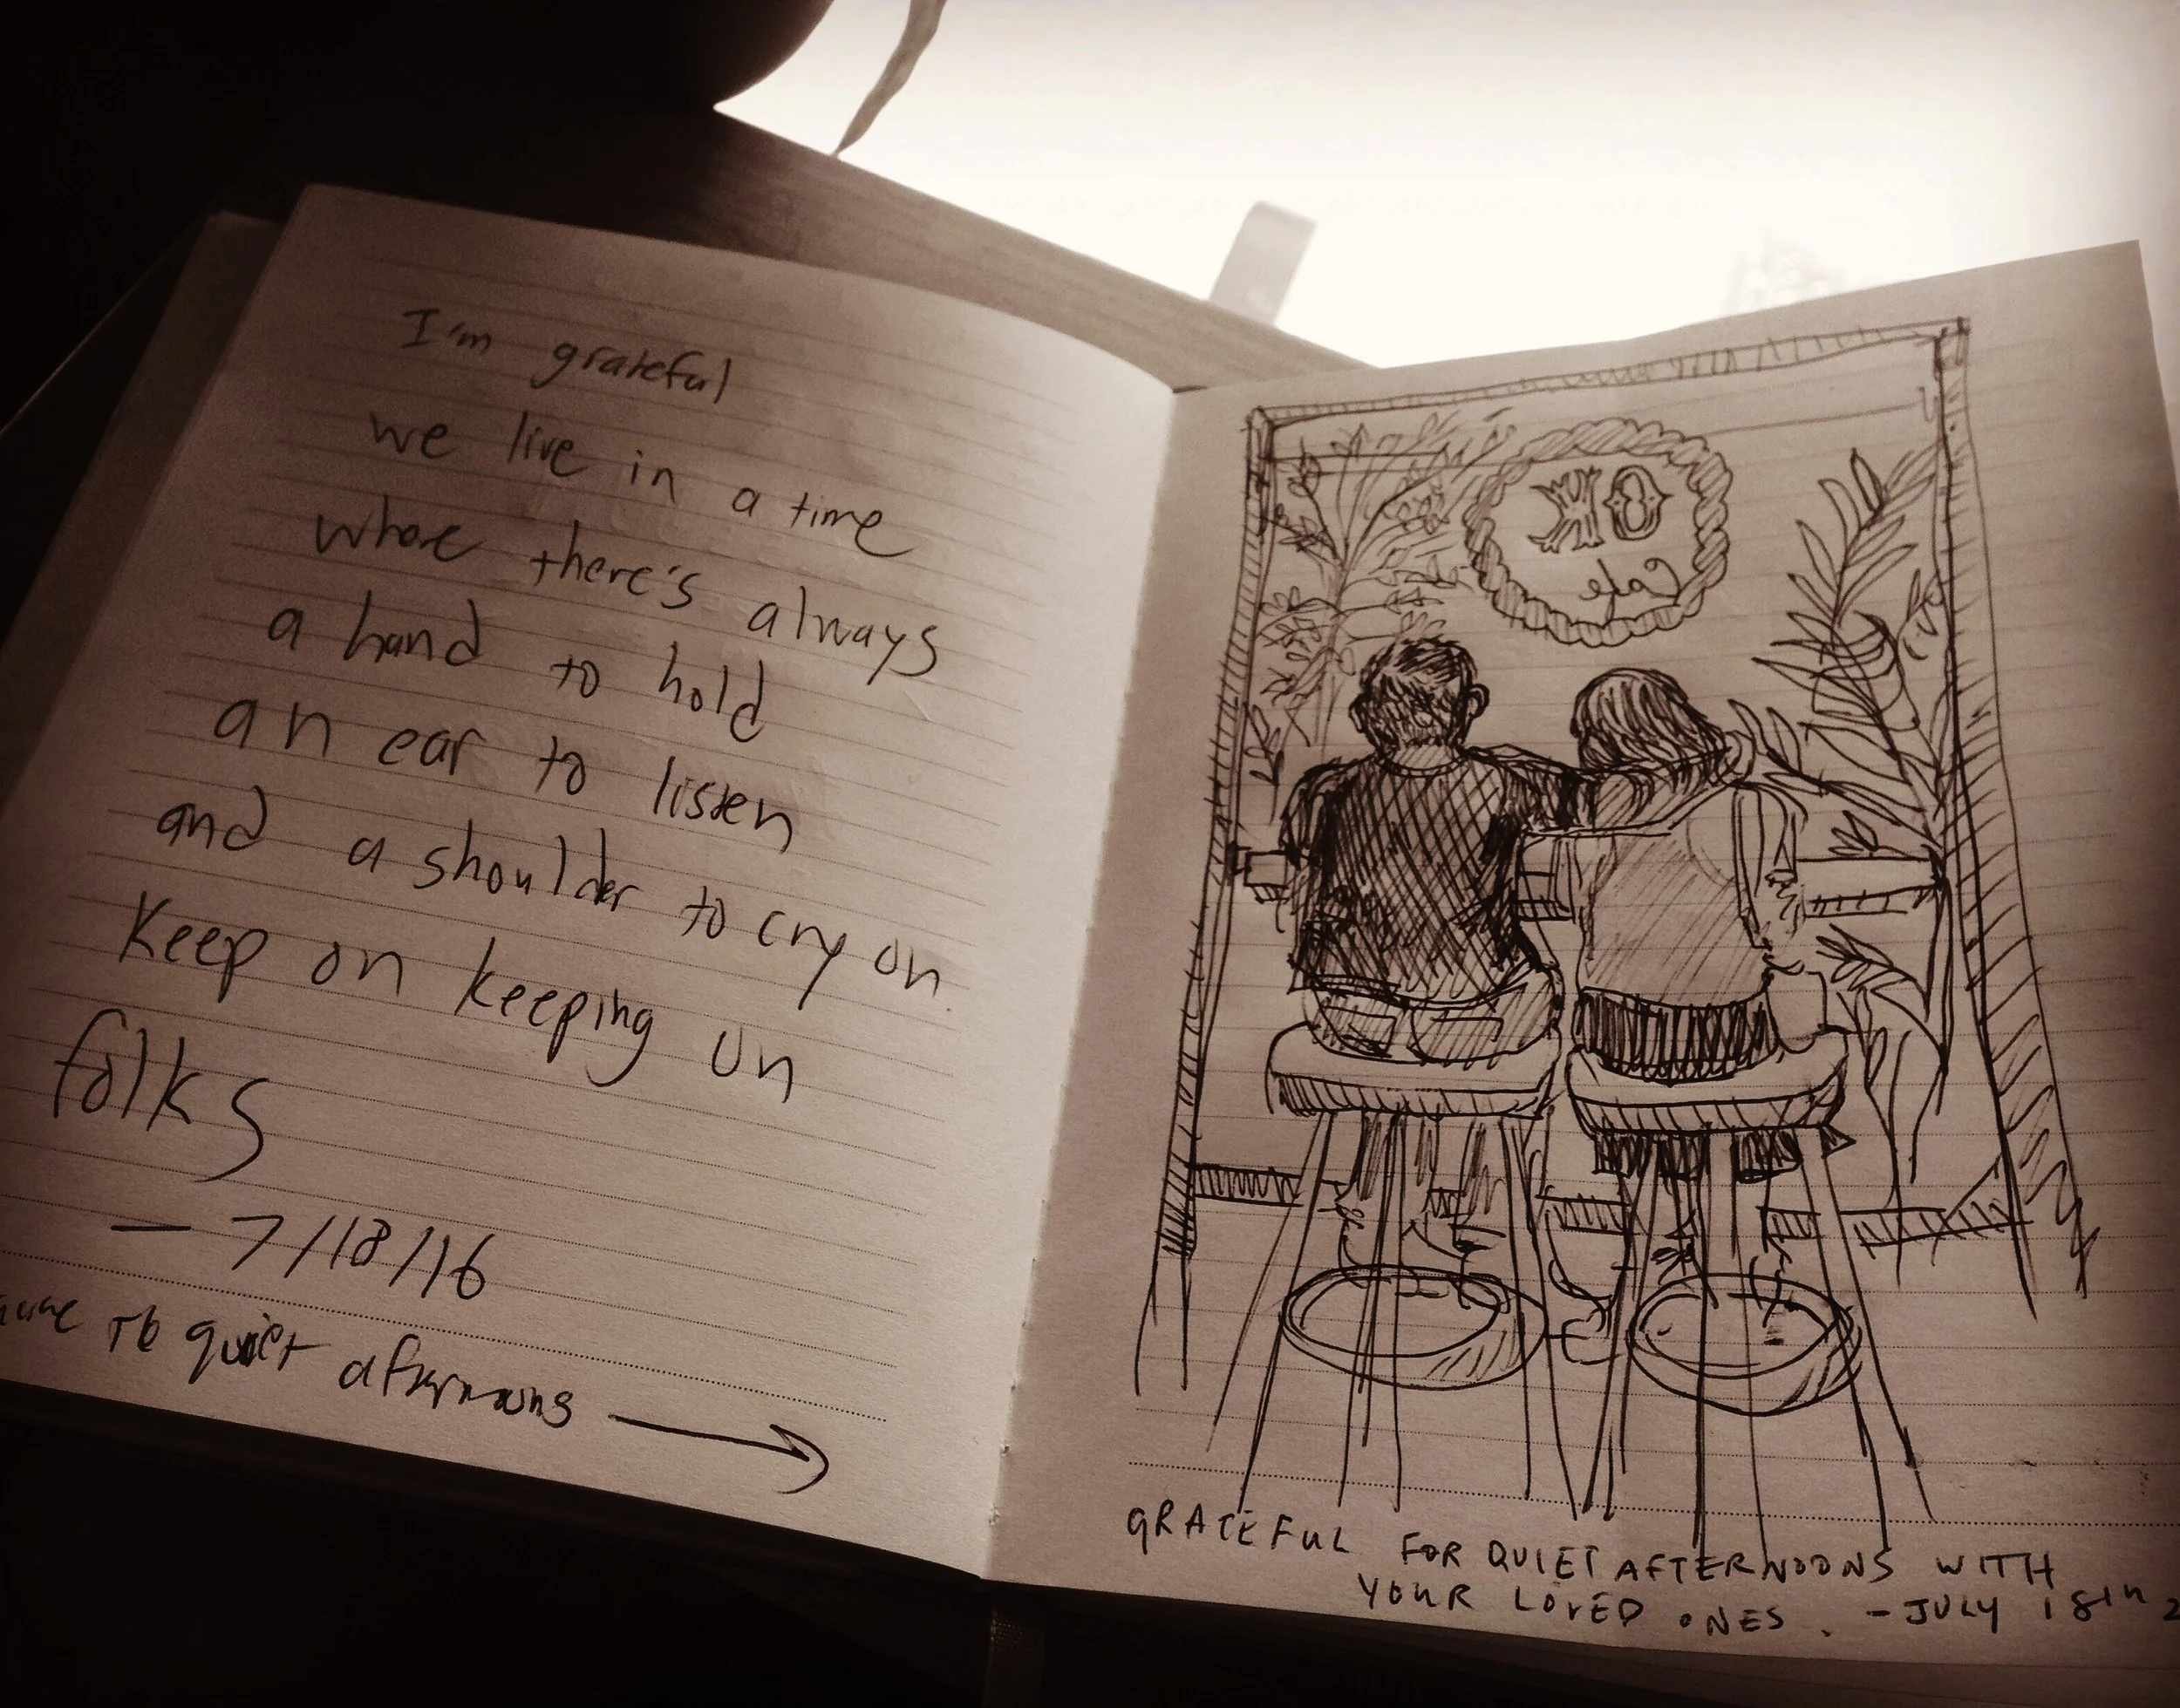 I'm grateful
we live in a time
where there's always
a hand to hold
an ear to listen
and a shoulder to cry on.
Keep on keeping on
folks
— 7/18/16
to quiet afternoons →
OK
Cafe
GRATEFUL FOR QUIET AFTERNOONS WITH
YOUR LOVED ONES. - JULY 18th 2